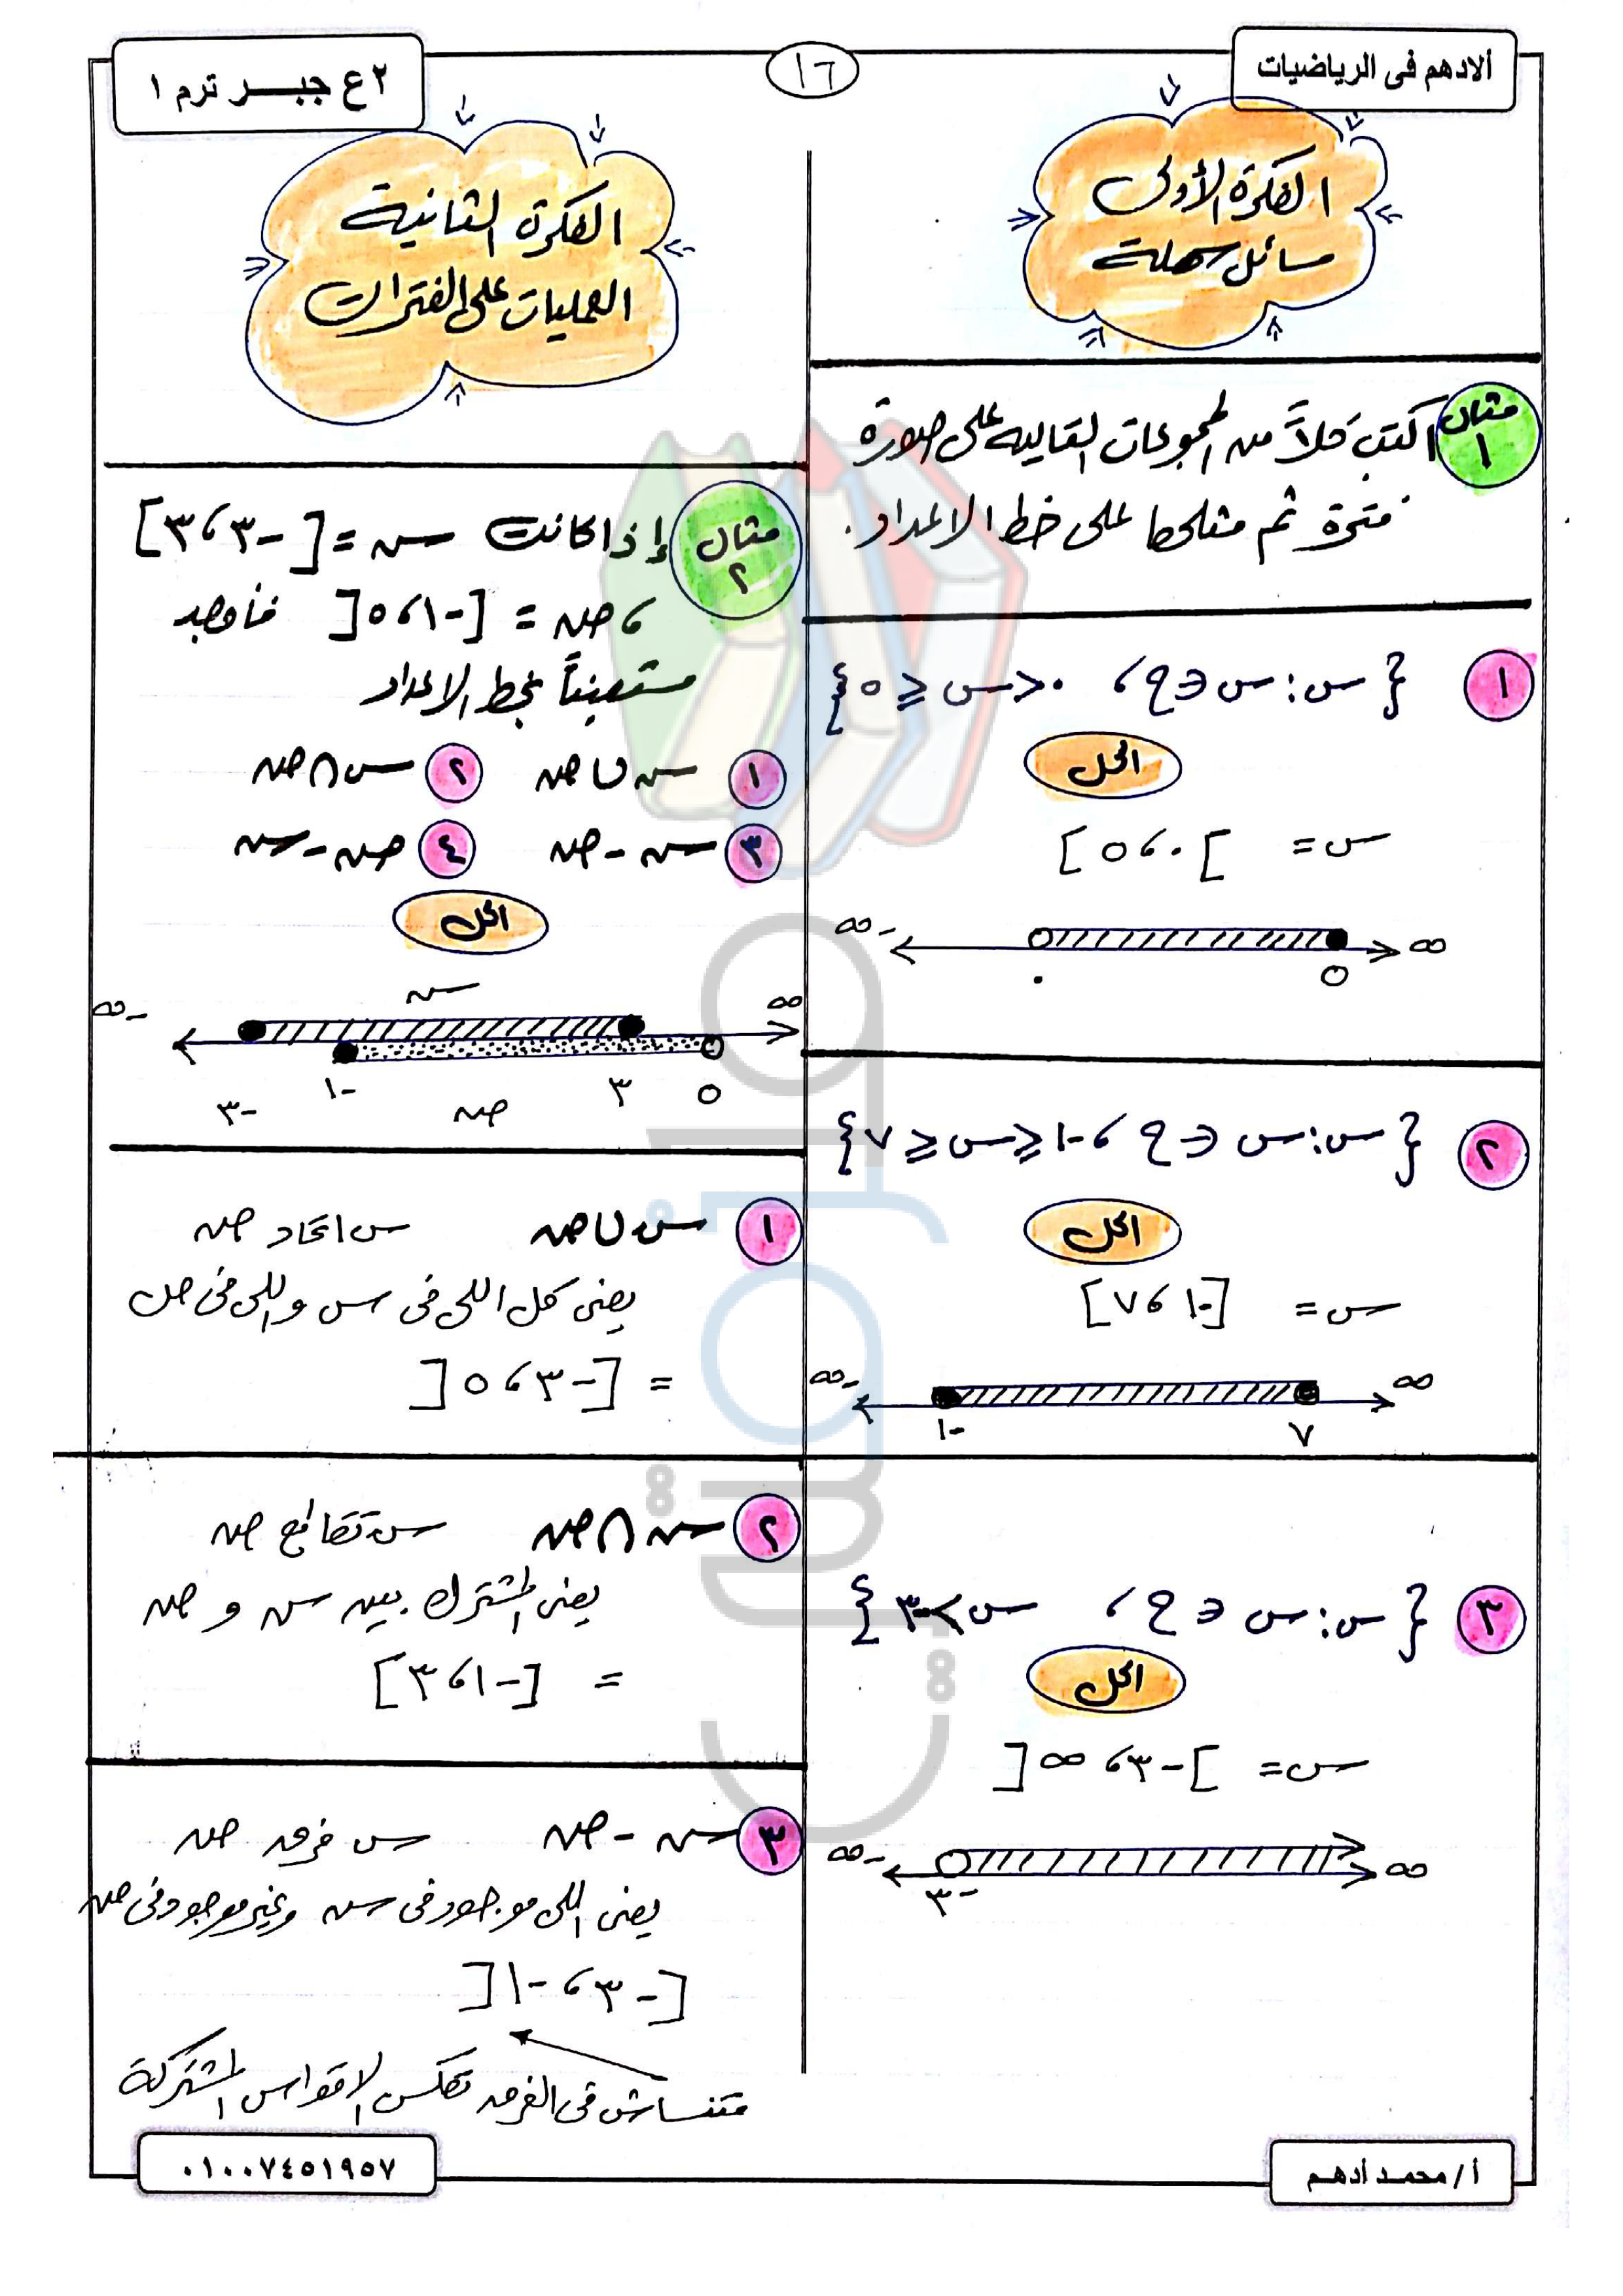 ألادهم فى الرياضيات
١٦
٢ ع جبـــر ترم ١
الفكرة الأولى
مسائل سهلة
مثال ١
اكتب كلاً من المجموعات التاليه على صورة
فترة ثم مثلها على خط الاعداد.
١ { س : س ∈ ح ، ٠ < س ≤ ٥ }
الحل
س = ] ٠ ، ٥ ]
-∞ ∞
٠ ٥
٢ { س : س ∈ ح ، -١ ≤ س ≤ ٧ }
الحل
س = [ -١ ، ٧ ]
-∞ ∞
-١ ٧
٣ { س : س ∈ ح ، س > -٣ }
الحل
س = ] -٣ ، ∞ [
-∞ ∞
-٣
الفكرة الثانية
العمليات على الفترات
مثال ٢
إذا كانت سـ = [ -٣ ، ٣ ]
، صـ = [ -١ ، ٥ [ فأوجد
مستعيناً بخط الاعداد
١ سـ ∪ صـ ٢ سـ ∩ صـ
٣ سـ - صـ ٤ صـ - سـ
الحل
سـ
-∞ ∞
-٣ -١ صـ ٣ ٥
١ سـ ∪ صـ س اتحاد صـ
يعنى كل اللى فى س واللى فى ص
= [ -٣ ، ٥ [
٢ سـ ∩ صـ سـ تقاطع صـ
يعنى المشترك بين سـ و صـ
= [ -١ ، ٣ ]
٣ سـ - صـ س فرق صـ
يعنى اللى موجود فى سـ وغير موجود فى صـ
[ -٣ ، -١ [
متنساش فى الفرق تعكس الاقواس المشتركة
أ / محمـد أدهـم
٠١٠٠٧٤٥١٩٥٧